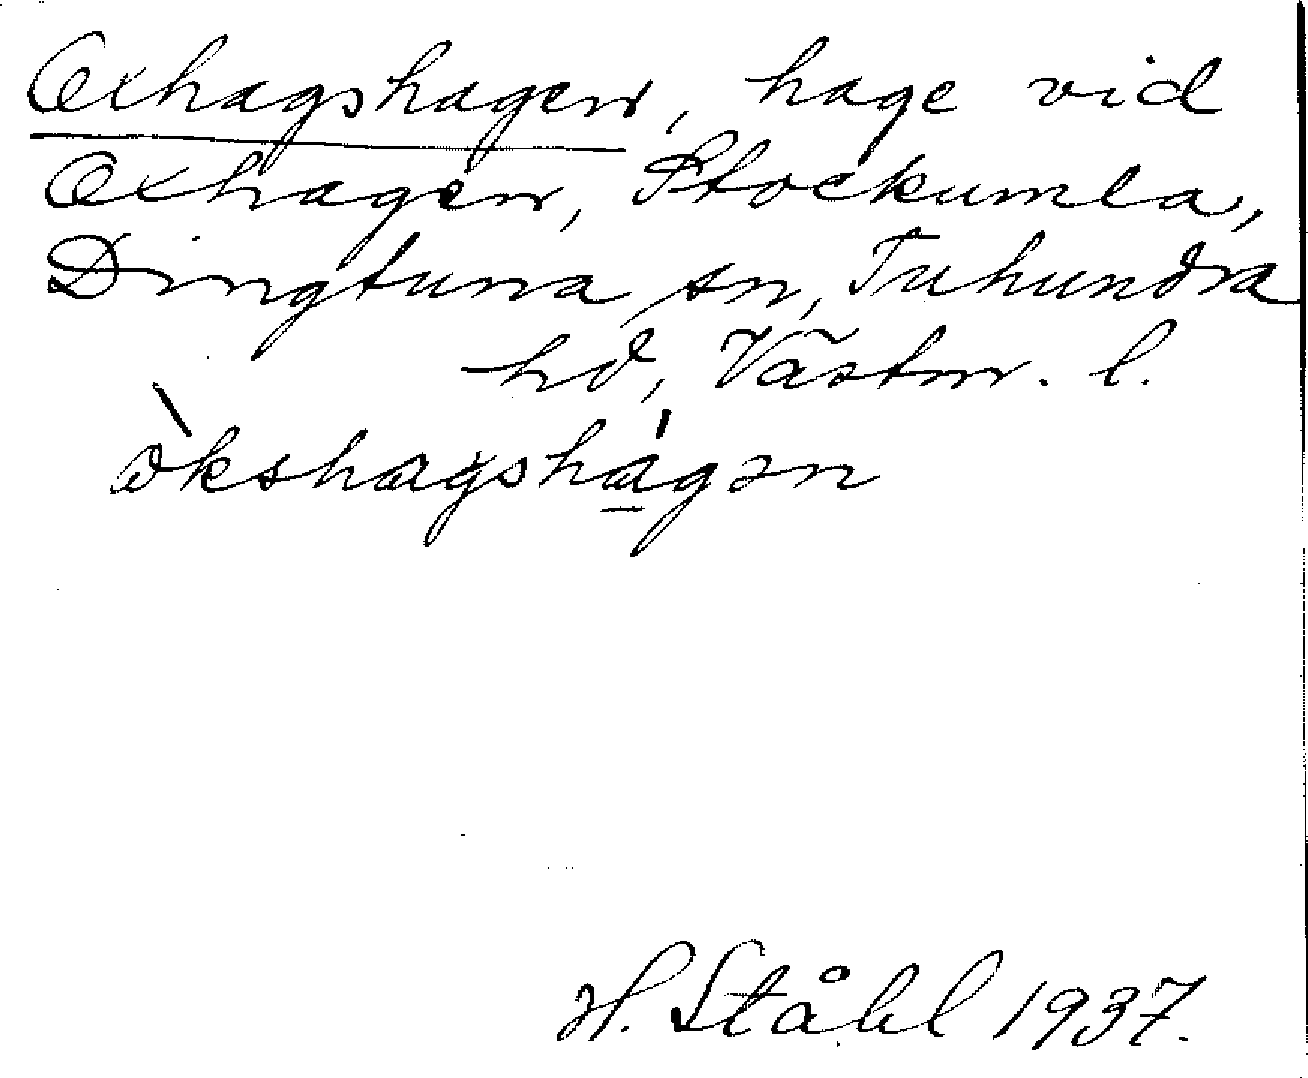 Oxhagshagen, hage vid
Oxhagen, Stockumla,
Dingtuna sn, Tuhundra
hd, Västm. l.
òkshagshágən
H. Ståhl 1937.